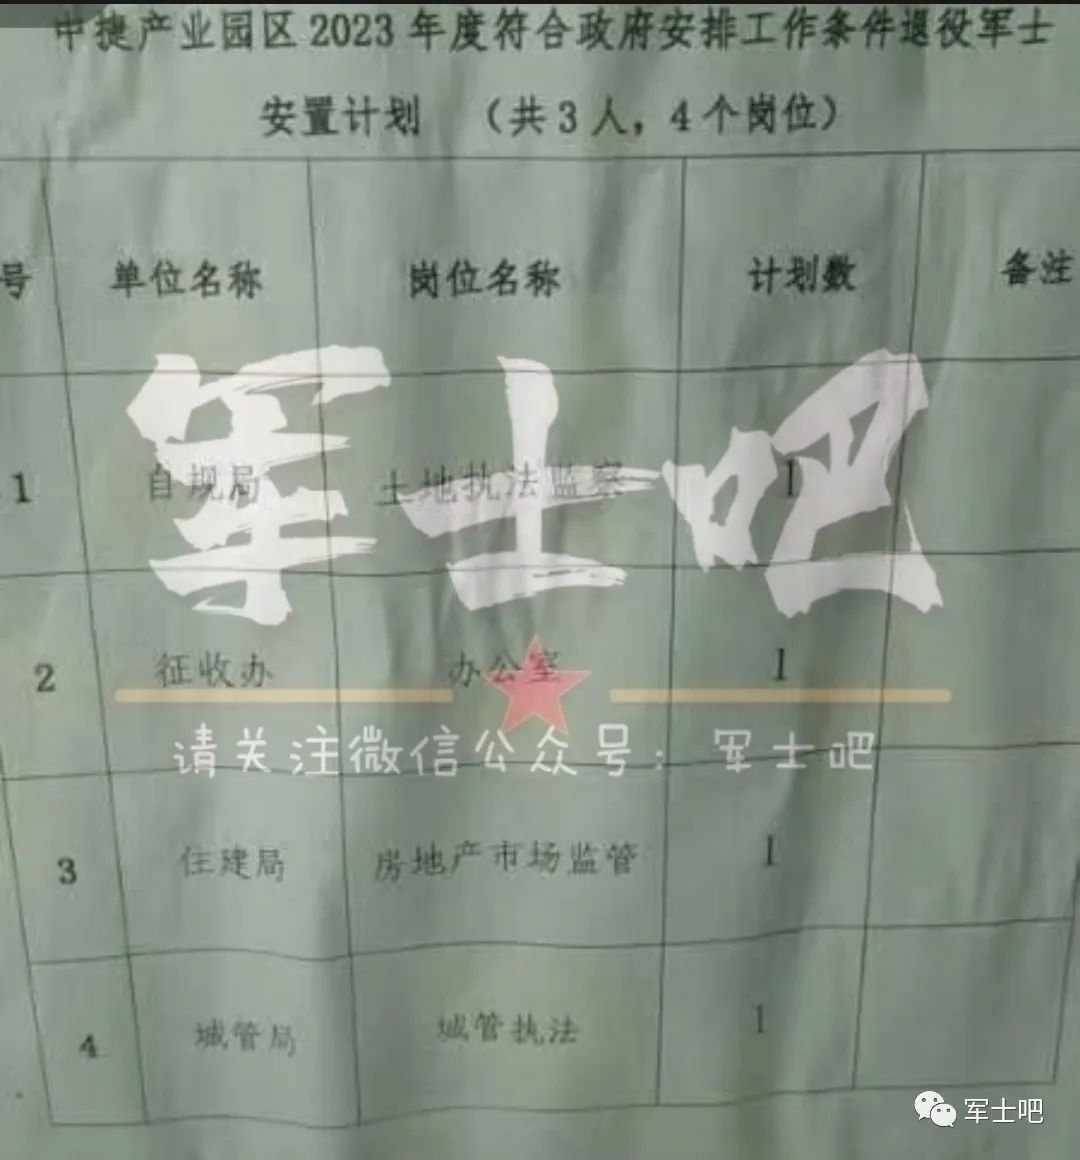 中捷产业园区2023年度符合政府安排工作条件退役军士
安置计划 （共3人，4个岗位）
号 单位名称 岗位名称 计划数 备注
1 自规局 土地执法监察 1
2 征收办 办公室 1
3 住建局 房地产市场监管 1
4 城管局 城管执法 1
军士吧
请关注微信公众号：军士吧
军士吧